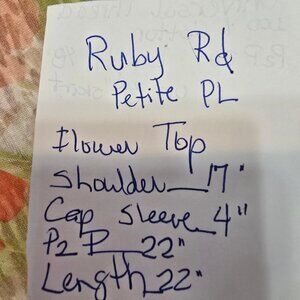 Ruby Rd
Petite PL
Flower Top
Shoulder__17"
Cap Sleeve_4"
P2 P__22"
Length_22"